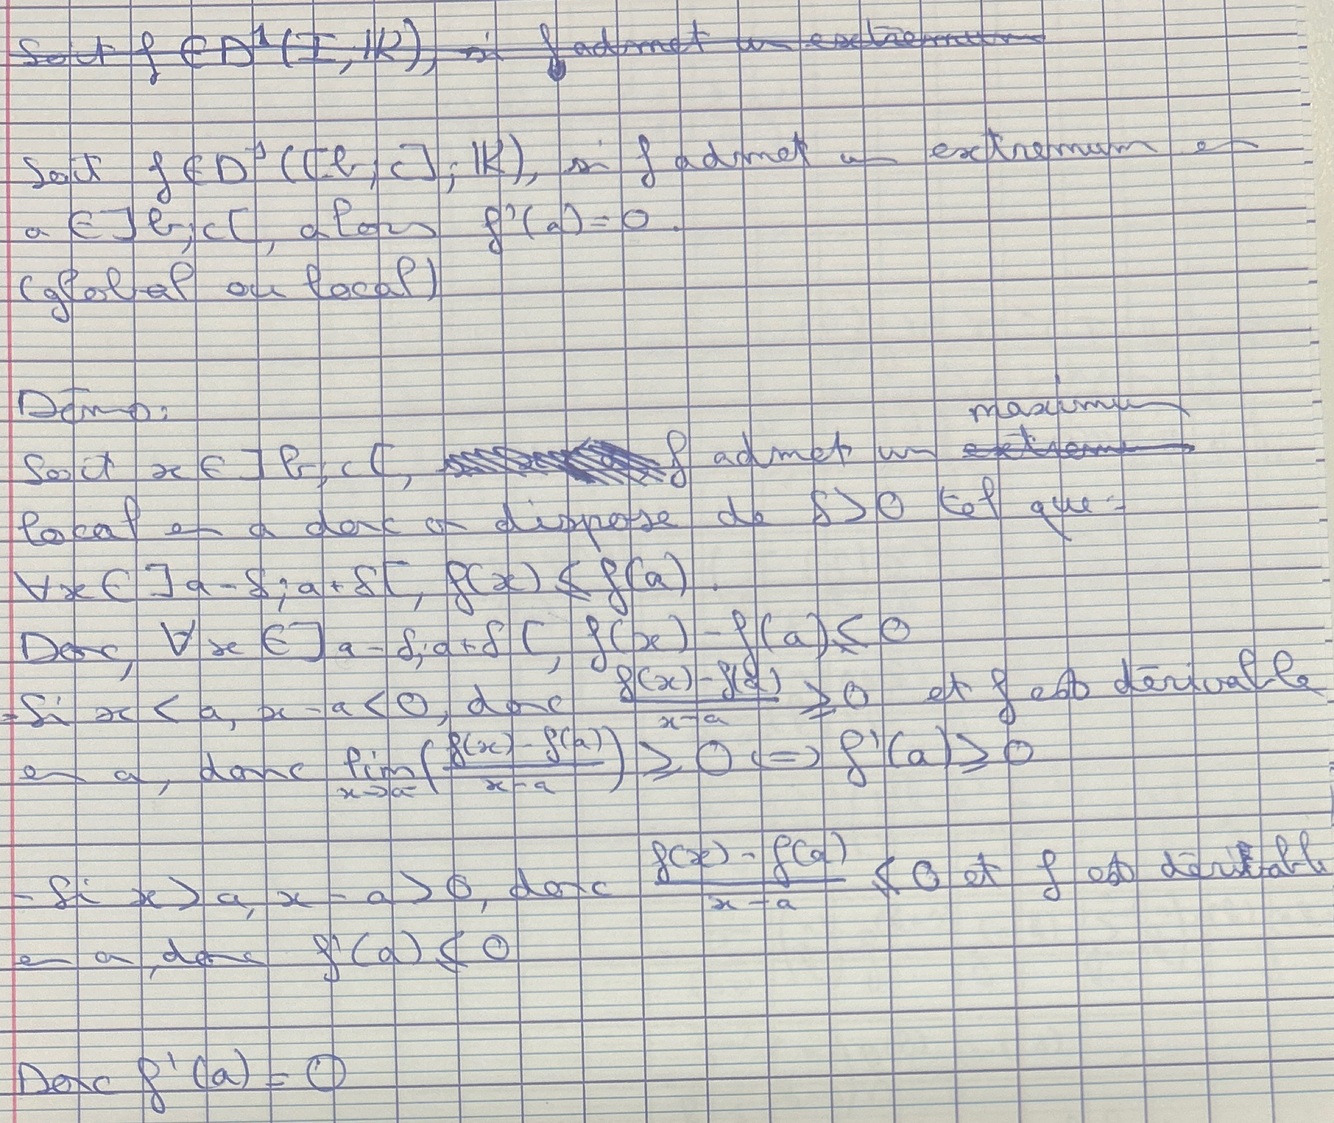 Soit f ∈ D¹(I, ℝ), si f admet un extremum
Soit f ∈ D¹([b, c], ℝ), si f admet un extremum en
a ∈ ]b, c[, alors f'(a) = 0.
(global ou local)
Démo:
maximum
Soit x ∈ ]b, c[, f admet un extremum
local en a donc on dispose de δ > 0 tel que :
∀x ∈ ]a - δ; a + δ[, f(x) ≤ f(a).
Donc, ∀x ∈ ]a - δ; a + δ[, f(x) - f(a) ≤ 0
- Si x < a, x - a < 0, donc (f(x) - f(a))/(x - a) ≥ 0 et f est dérivable
en a, donc lim_{x→a⁻} ((f(x) - f(a))/(x - a)) ≥ 0 <=> f'(a) ≥ 0
- Si x > a, x - a > 0, donc (f(x) - f(a))/(x - a) ≤ 0 et f est dérivable
en a, donc f'(a) ≤ 0
Donc f'(a) = 0